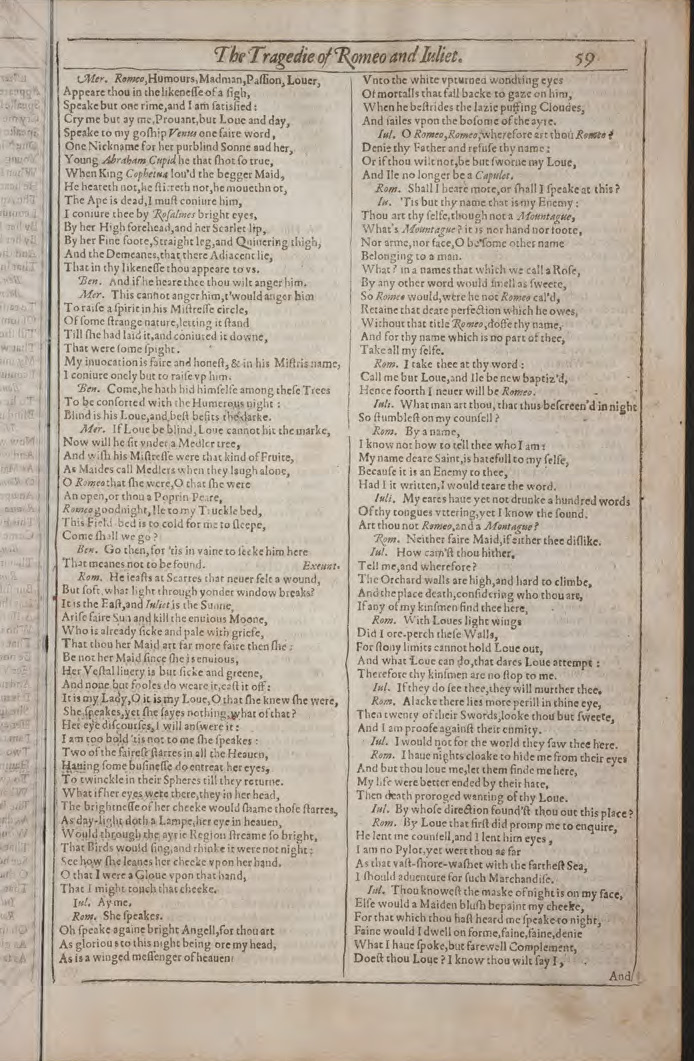 The Tragedie of Romeo and Iuliet. 59
Mer. Romeo, Humours, Madman, Paſſion, Louer,
Appeare thou in the likeneſſe of a ſigh,
Speake but one rime, and I am ſatisfied:
Cry me but ay me, Prouant, but Loue and day,
Speake to my goſhip Venus one faire word,
One Nickname for her purblind Sonne and her,
Young Abraham Cupid he that ſhot ſo true,
When King Cophetua lou'd the begger Maid,
He heareth not, he ſtirreth not, he moueth not,
The Ape is dead, I muſt coniure him,
I coniure thee by Roſalines bright eyes,
By her High forehead, and her Scarlet lip,
By her Fine foote, Straight leg, and Quiuering thigh,
And the Demeanes, that there Adiacent lie,
That in thy likeneſſe thou appeare to vs.
Ben. And if he heare thee thou wilt anger him.
Mer. This cannot anger him, t'would anger him
To raiſe a ſpirit in his Miſtreſſe circle,
Of ſome ſtrange nature, letting it ſtand
Till ſhe had laid it, and coniured it downe,
That were ſome ſpight.
My inuocation is faire and honeſt, & in his Miſtris name,
I coniure onely but to raiſe vp him.
Ben. Come, he hath hid himſelfe among theſe Trees
To be conſorted with the Humerous night:
Blind is his Loue, and beſt befits the darke.
Mer. If Loue be blind, Loue cannot hit the marke,
Now will he ſit vnder a Medler tree,
And wiſh his Miſtreſſe were that kind of Fruite,
As Maides call Medlers when they laugh alone,
O Romeo that ſhe were, O that ſhe were
An open, or thou a Poprin Peare,
Romeo goodnight, Ile to my Truckle bed,
This Field-bed is to cold for me to ſleepe,
Come ſhall we go?
Ben. Go then, for 'tis in vaine to ſeeke him here
That meanes not to be found. Exeunt.
Rom. He ieaſts at Scarres that neuer felt a wound,
But ſoft, what light through yonder window breaks?
It is the Eaſt, and Iuliet is the Sunne,
Ariſe faire Sun and kill the enuious Moone,
Who is already ſicke and pale with griefe,
That thou her Maid art far more faire then ſhe:
Be not her Maid ſince ſhe is enuious,
Her Veſtal liuery is but ſicke and greene,
And none but fooles do weare it, caſt it off:
It is my Lady, O it is my Loue, O that ſhe knew ſhe were,
She ſpeakes, yet ſhe ſayes nothing, what of that?
Her eye diſcourſes, I will anſwere it:
I am too bold 'tis not to me ſhe ſpeakes:
Two of the faireſt ſtarres in all the Heauen,
Hauing ſome buſineſſe do entreat her eyes,
To twinckle in their Spheres till they returne.
What if her eyes were there, they in her head,
The brightneſſe of her cheeke would ſhame thoſe ſtarres,
As day-light doth a Lampe, her eye in heauen,
Would through the ayrie Region ſtreame ſo bright,
That Birds would ſing, and thinke it were not night:
See how ſhe leanes her cheeke vpon her hand.
O that I were a Gloue vpon that hand,
That I might touch that cheeke.
Iul. Ay me.
Rom. She ſpeakes.
Oh ſpeake againe bright Angell, for thou art
As glorious to this night being ore my head,
As is a winged meſſenger of heauen
Vnto the white vpturned wondring eyes
Of mortalls that fall backe to gaze on him,
When he beſtrides the lazie puffing Cloudes,
And ſailes vpon the boſome of the ayre.
Iul. O Romeo, Romeo, wherefore art thou Romeo?
Denie thy Father and refuſe thy name:
Or if thou wilt not, be but ſworne my Loue,
And Ile no longer be a Capulet.
Rom. Shall I heare more, or ſhall I ſpeake at this?
Iu. 'Tis but thy name that is my Enemy:
Thou art thy ſelfe, though not a Mountague,
What's Mountague? it is nor hand nor foote,
Nor arme, nor face, O be ſome other name
Belonging to a man.
What? in a names that which we call a Roſe,
By any other word would ſmell as ſweete,
So Romeo would, were he not Romeo cal'd,
Retaine that deare perfection which he owes,
Without that title Romeo, doffe thy name,
And for thy name which is no part of thee,
Take all my ſelfe.
Rom. I take thee at thy word:
Call me but Loue, and Ile be new baptiz'd,
Hence foorth I neuer will be Romeo.
Iuli. What man art thou, that thus beſcreen'd in night
So ſtumbleſt on my counſell?
Rom. By a name,
I know not how to tell thee who I am:
My name deare Saint, is hatefull to my ſelfe,
Becauſe it is an Enemy to thee,
Had I it written, I would teare the word.
Iuli. My eares haue yet not drunke a hundred words
Of thy tongues vttering, yet I know the ſound.
Art thou not Romeo, and a Montague?
Rom. Neither faire Maid, if either thee diſlike.
Iul. How cam'ſt thou hither,
Tell me, and wherefore?
The Orchard walls are high, and hard to climbe,
And the place death, conſidering who thou art,
If any of my kinſmen find thee here,
Rom. With Loues light wings
Did I ore-perch theſe Walls,
For ſtony limits cannot hold Loue out,
And what Loue can do, that dares Loue attempt:
Therefore thy kinſmen are no ſtop to me.
Iul. If they do ſee thee, they will murther thee.
Rom. Alacke there lies more perill in thine eye,
Then twenty of their Swords, looke thou but ſweete,
And I am proofe againſt their enmity.
Iul. I would not for the world they ſaw thee here.
Rom. I haue nights cloake to hide me from their eyes
And but thou loue me, let them finde me here,
My life were better ended by their hate,
Then death proroged wanting of thy Loue.
Iul. By whoſe direction found'ſt thou out this place?
Rom. By Loue that firſt did promp me to enquire,
He lent me counſell, and I lent him eyes,
I am no Pylot, yet wert thou as far
As that vaſt-ſhore-waſhet with the fartheſt Sea,
I ſhould aduenture for ſuch Marchandiſe.
Iul. Thou knoweſt the maske of night is on my face,
Elſe would a Maiden bluſh bepaint my cheeke,
For that which thou haſt heard me ſpeake to night,
Faine would I dwell on forme, faine, faine, denie
What I haue ſpoke, but farewell Complement,
Doeſt thou Loue? I know thou wilt ſay I,
And